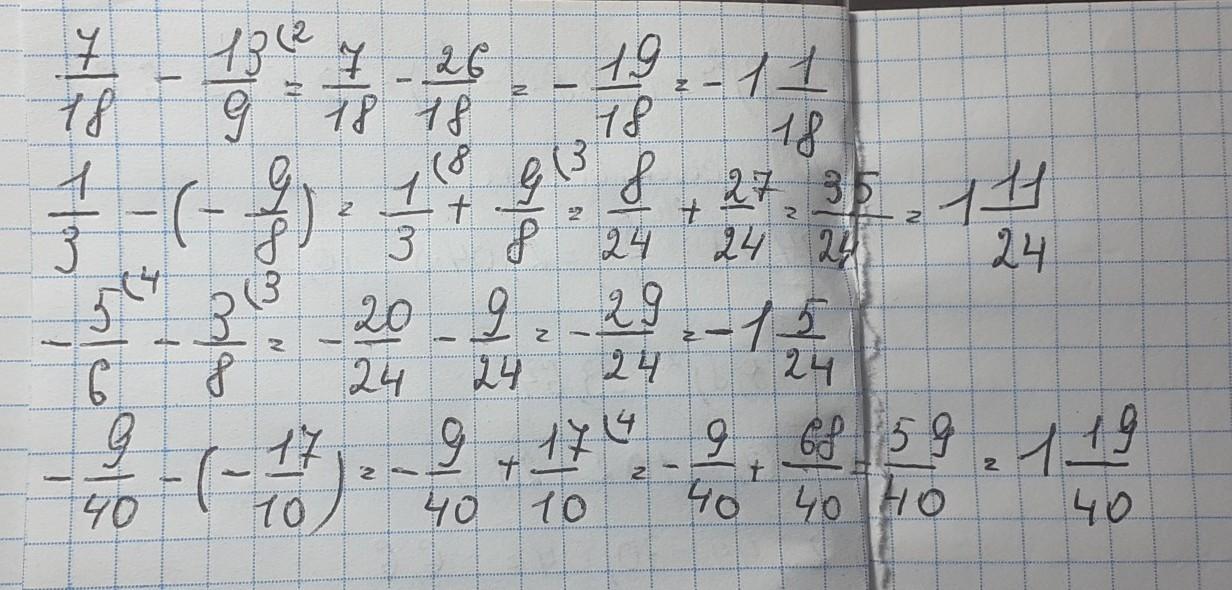 7/18 - 13(2/9 = 7/18 - 26/18 = - 19/18 = - 1 1/18
1/3 - (- 9/8) = 1(8/3 + 9(3/8 = 8/24 + 27/24 = 35/24 = 1 11/24
- 5(4/6 - 3(3/8 = - 20/24 - 9/24 = - 29/24 = - 1 5/24
- 9/40 - (- 17/10) = - 9/40 + 17(4/10 = - 9/40 + 68/40 = 59/40 = 1 19/40